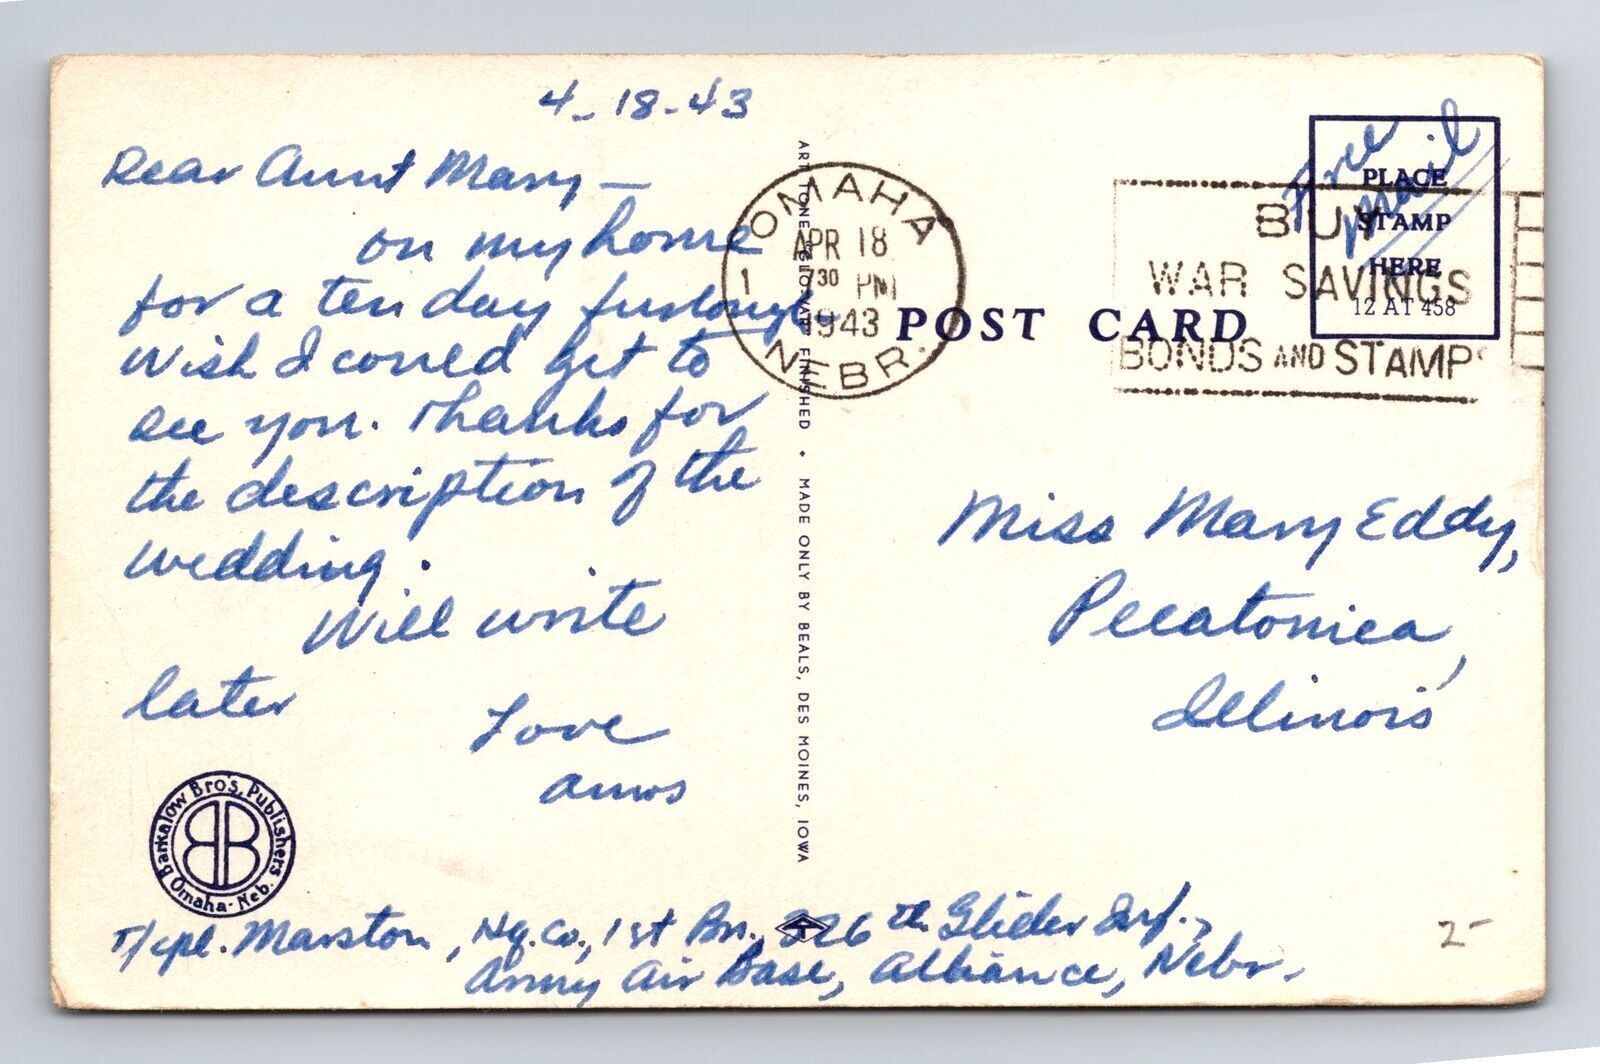 4-18-43
Dear Aunt Mary —
on my home
for a ten day furlough
wish I could get to
see you. Thanks for
the description of the
wedding.
Will write
later
Love
Amos
Barkalow Bro's, Publishers
Omaha - Neb.
BB
T/cpl. Marston, Hq. Co., 1st Bn., 326th Glider Inf.,
Army Air Base, Alliance, Nebr.
ART TONE "GLO-VAR" FINISHED • MADE ONLY BY BEALS, DES MOINES, IOWA
OMAHA
APR 18
30 PM
1943
NEBR.
1
POST CARD
BUY
WAR SAVINGS
BONDS AND STAMPS
Free
Mail
PLACE
STAMP
HERE
12 AT 458
Miss Mary Eddy,
Pecatonica,
Illinois
2-